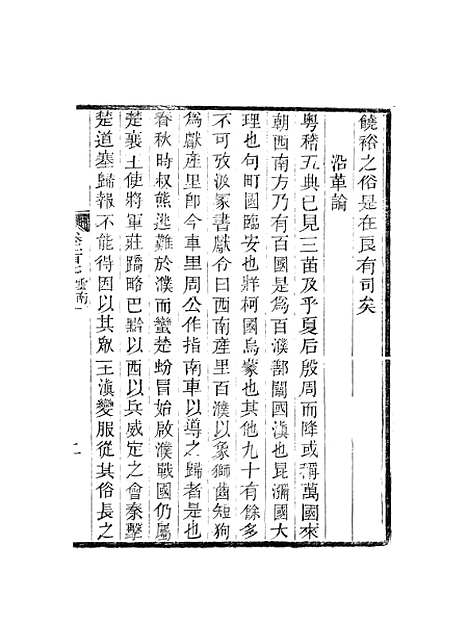 饒裕之俗是在良有司矣
沿革論
粤稽五典已見三苗及乎夏后殷周而降或稱萬國來
朝西南方乃有百國是爲百濮鄯闡國滇也昆瀰國大
理也句町國臨安也牂柯國烏蒙也其他九十有餘多
不可攷汲冢書獻令曰西南産里百濮以象獅齒短狗
爲獻産里卽今車里周公作指南車以導之歸者是也
春秋時叔熊逃難於濮而蠻楚蚡冒始啟濮戰國仍屬
楚襄王使將軍莊蹻略巴黔以西以兵威定之會秦擊
楚道塞歸報不能得因以其眾王滇變服從其俗長之
雲南一
二